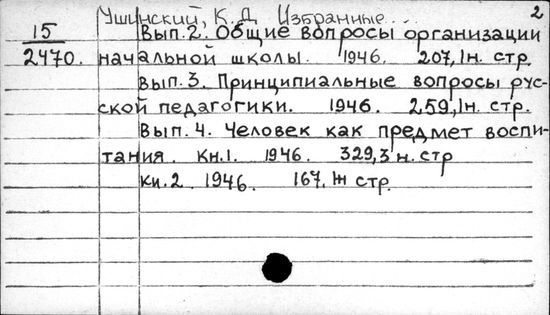 Ушинский, К. Д. Избранные... 2
15 Вып. 2. Общие вопросы организации
2470. начальной школы. 1946. 207, 1н. стр.
Вып. 3. Принципиальные вопросы рус-
ской педагогики. 1946. 259, 1н. стр.
Вып. 4. Человек как предмет воспи-
тания. Кн. 1. 1946. 329, 3 н. стр
кн. 2 1946. 167, стр.